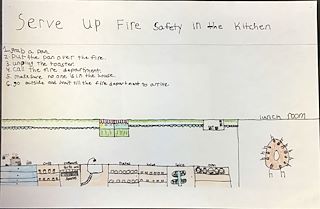 Serve Up Fire Safety in the Kitchen
1. grab a pan.
2. Put the pan over the fire.
3. unplug the toaster.
4. Call The fire department.
5. make sure no one is in the house.
6. go outside and wait till the fire department to arrive.
lunch room